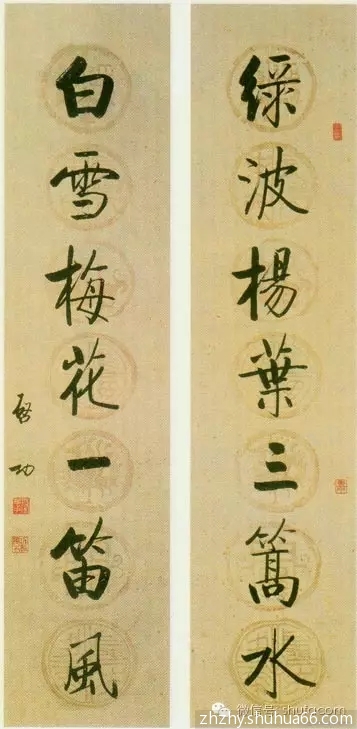 綠波楊葉三篙水
白雪梅花一笛風
啓功
微信号: shufacom
zhzhyshuhua66.com